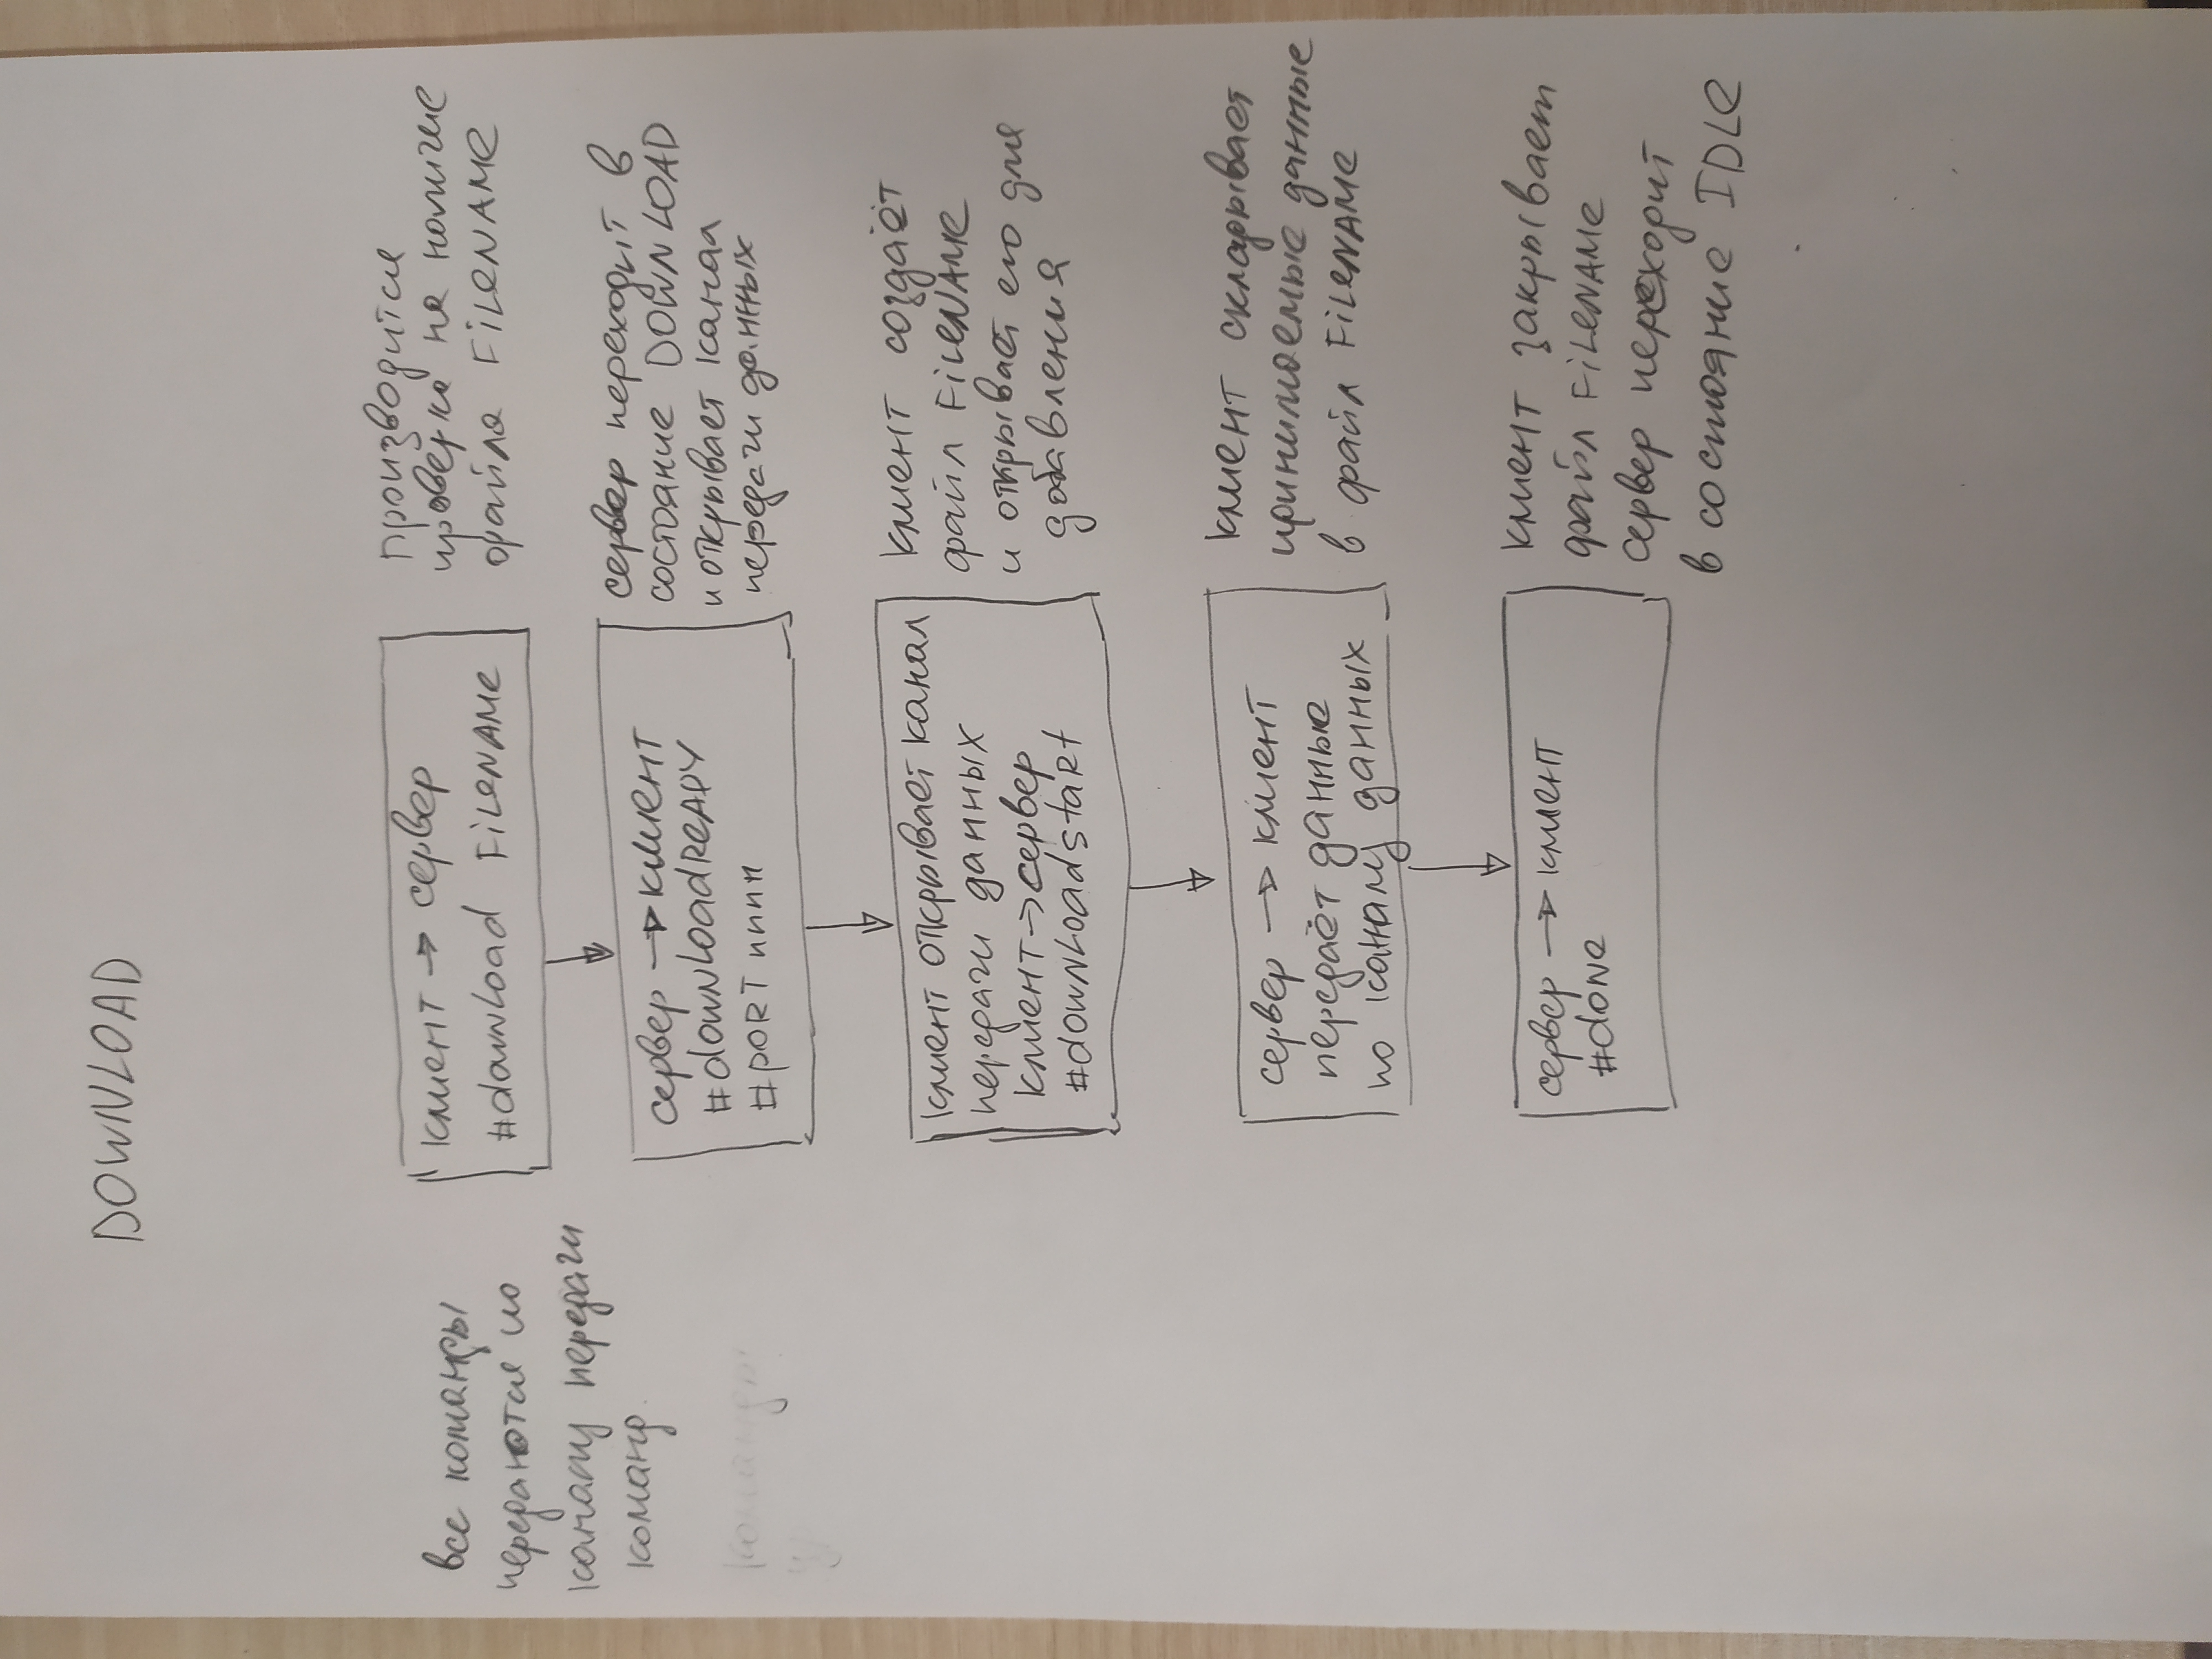 DOWNLOAD
все команды
передаются по
каналу передачи
команд.
команды
клиент → сервер
#download FILENAME
производится
проверка на наличие
файла FILENAME
сервер → клиент
#downloadREADY
#PORT nnnn
сервер переходит в
состояние DOWNLOAD
и открывает канал
передачи данных
клиент открывает канал
передачи данных
клиент → сервер
#downloadstart
клиент создаёт
файл FILENAME
и открывает его для
добавления
сервер → клиент
передаёт данные
по каналу данных
клиент складывает
принимаемые данные
в файл FILENAME
сервер → клиент
#done
клиент закрывает
файл FILENAME
сервер переходит
в состояние IDLE